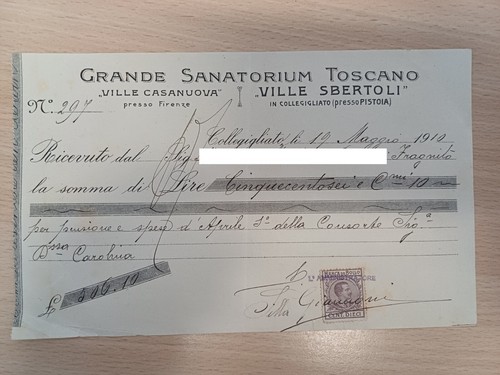 GRANDE SANATORIUM TOSCANO
„VILLE CASANUOVA" „VILLE SBERTOLI"
presso Firenze IN COLLEGIGLIATO (presso PISTOIA)
N.º 297
Collegigliato, li 19 Maggio 1910
Ricevuto dal Sig. Fragnito
la somma di Lire Cinquecentosei e C.mi 10
per pensione e spese d'Aprile della Consorte Sig.a
D.ssa Carolina
£ 506.10
L'AMMINISTRATORE
CENT. DIECI